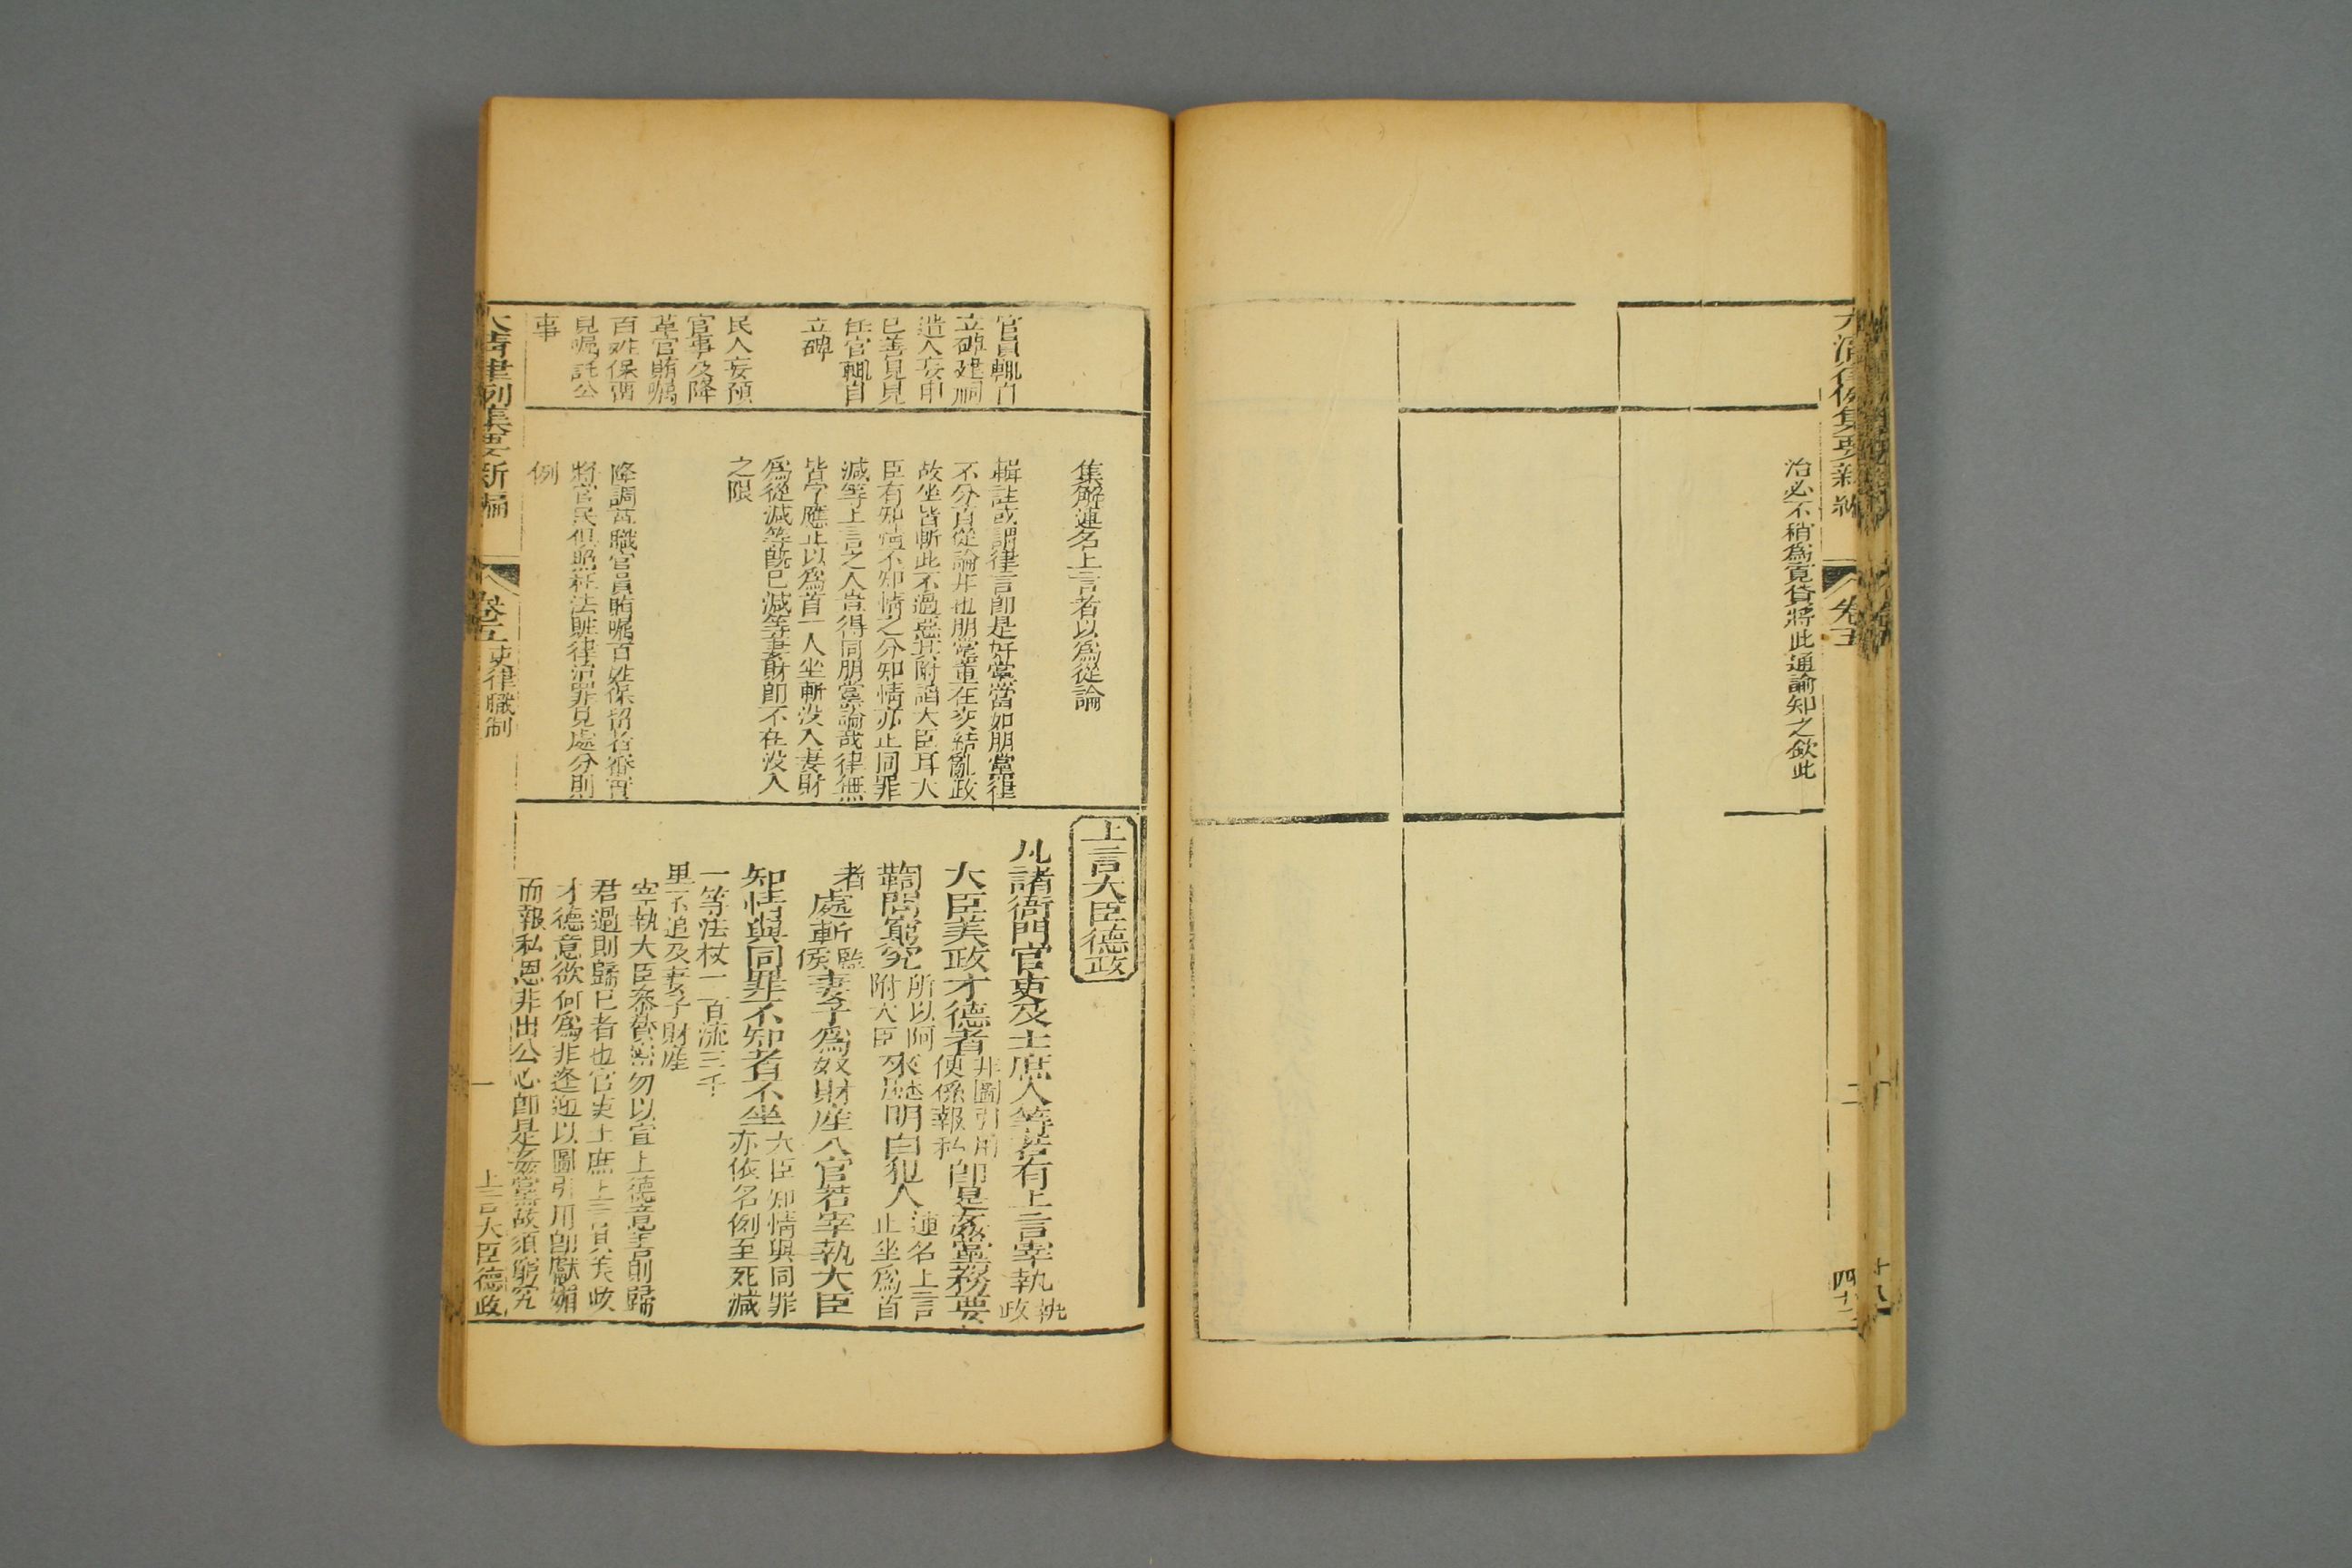 大清律例集要新編
卷五
二
四十二
治必不稍為寬貸將此通諭知之欽此
官員輒自
立碑建祠
遣人妄申
已善見見
任官輒自
立碑
民人妄預
官事及降
革官賄囑
百姓保留
見囑託公
事
集解連名上言者以為從論
輯註或謂律言卽是奸黨當如朋黨律
不分首從論非也朋黨重在交結亂政
故坐皆斬此不過惡其附謟大臣耳大
臣有知情不知情之分知情亦止同罪
減等上言之人豈得同朋黨論哉律無
皆字應止以為首一人坐斬沒入妻財
為從減等旣已減等妻財卽不在沒入
之限
降調革職官員賄囑百姓保留者審實
將官民俱照枉法贓律治罪見處分則
例
上言大臣德政
凡諸衙門官吏及士庶人等若有上言宰執執政
大臣美政才德者非圖引用便係報私卽是姦黨務要
鞫問窮究所以阿附大臣來歷明白犯人連名上言止坐為首
者處斬監候妻子為奴財產入官若宰執大臣
知情與同罪不知者不坐大臣知情與同罪亦依名例至死減
一等法杖一百流三千
里不追及妻子財產
宰執大臣叅贊密勿以宣上德意善則歸
君過則歸已者也官吏士庶上言其美政
才德意欲何為非逢迎以圖引用卽獻媚
而報私恩非出公心卽是姦黨故須窮究
大清律例集要新編
卷五 吏律職制
一
上言大臣德政